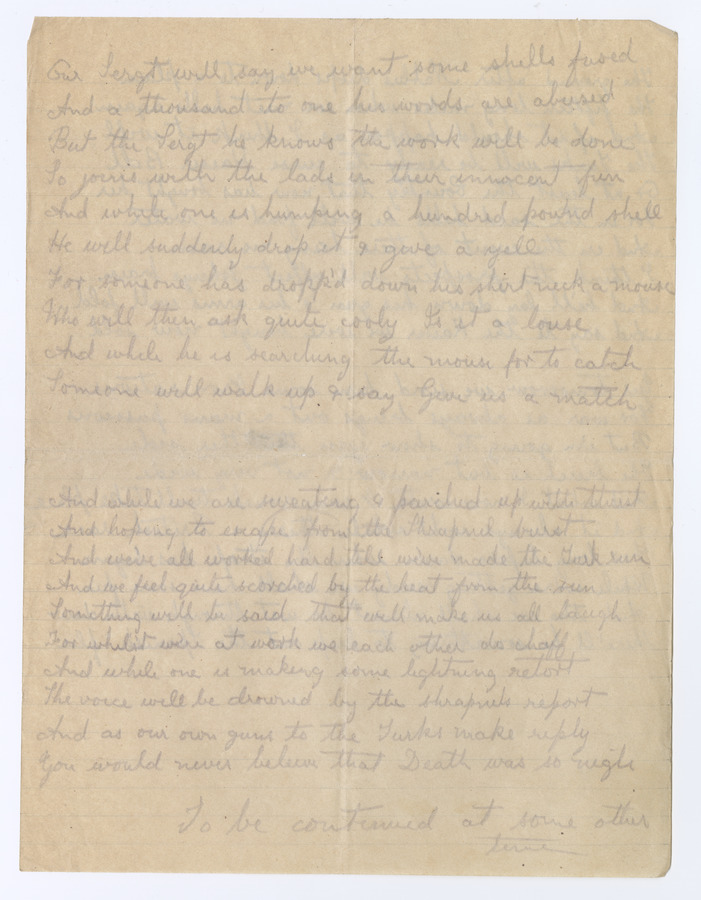 Our Sergt will say we want some shells fused
And a thousand to one his words are abused
But the Sergt he knows the work will be done
So joins with the lads in their innocent fun
And while one is humping a hundred pound shell
He will suddenly drop it & give a yell
For someone has dropp'd down his shirt neck a mouse
Who will then ask quite cooly Is it a louse
And while he is searching the mouse for to catch
Someone will walk up & say Give us a match
And while we are sweating & parched up with thirst
And hoping to escape from the Shrapnel burst
And we've all worked hard till we've made the Turk run
And we feel quite scorched by the heat from the sun
Something will be said that will make us all laugh
For whilst we're at work we each other do chaff
And while one is making some lightning retort
The voice will be drowned by the shrapnels report
And as our own guns to the Turks make reply
You would never believe that Death was so nigh
To be continued at some other
time